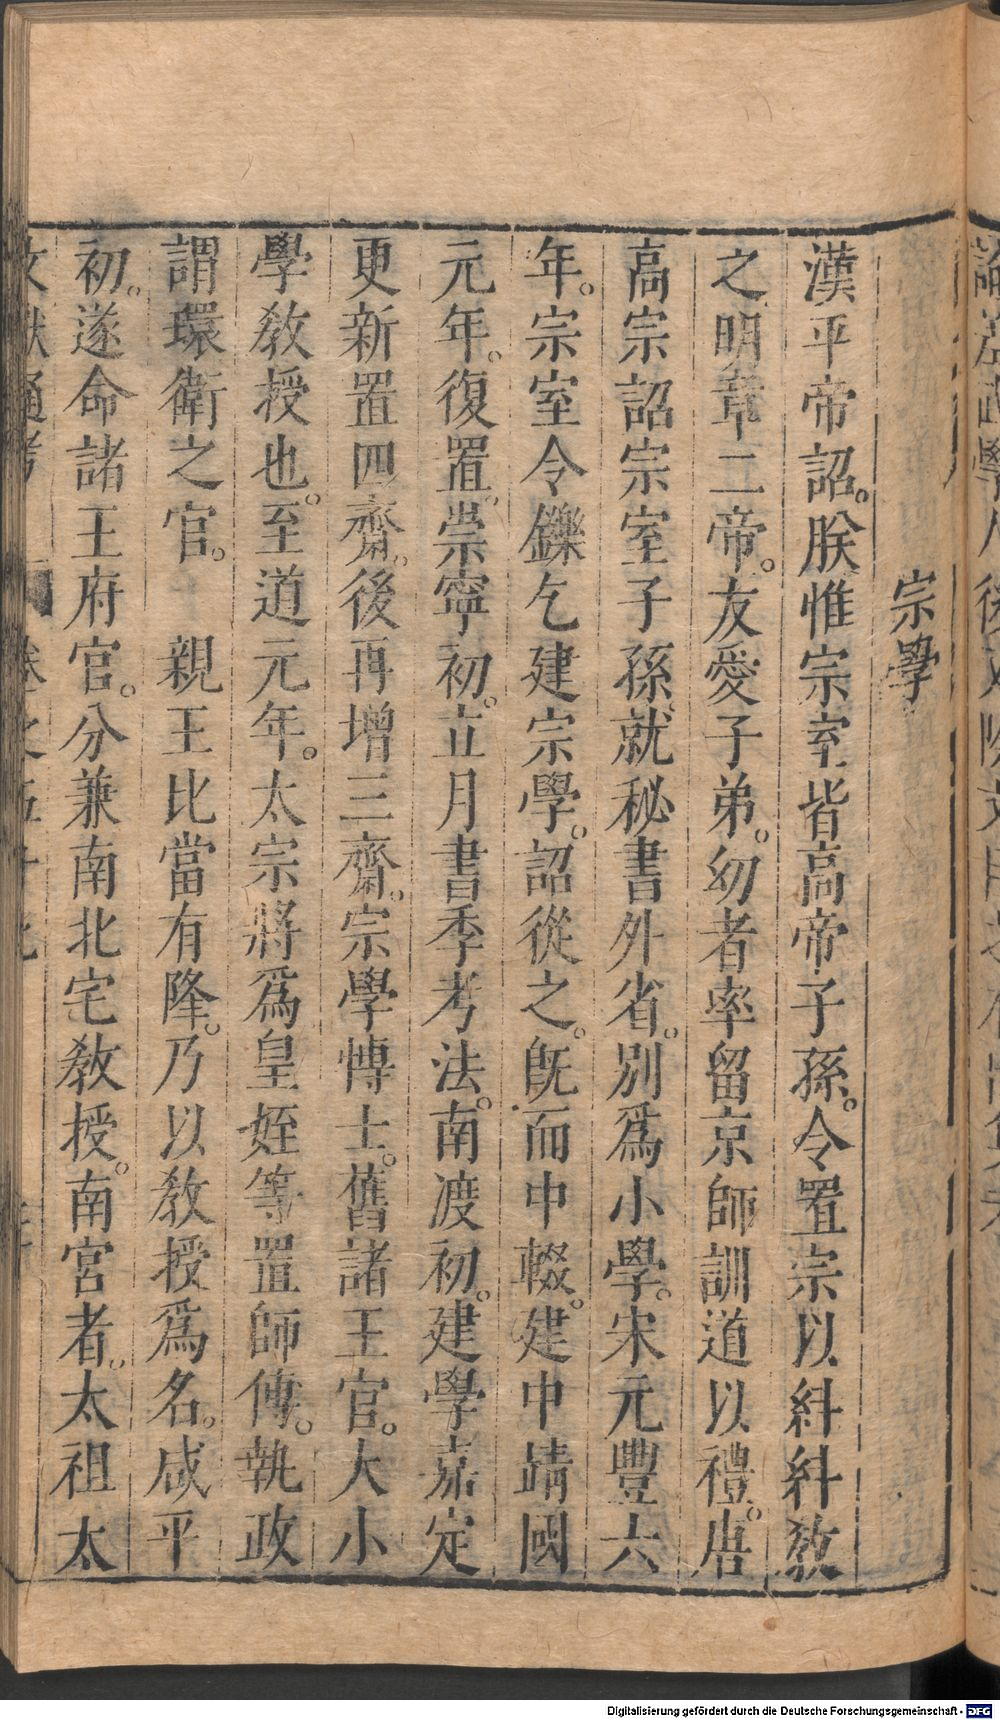 宗學
漢平帝詔。朕惟宗室皆高帝子孫。令置宗以糾糾敎
之。明章二帝。友愛子弟。幼者率留京師訓道以禮。唐
高宗詔宗室子孫就秘書外省。別爲小學。宋元豐六
年。宗室令鑠乞建宗學。詔從之。旣而中輟。建中靖國
元年。復置。崇寧初。立月書季考法。南渡初。建學嘉定
更新置四齋。後再增三齋。宗學博士。舊諸王官。大小
學敎授也。至道元年。太宗將爲皇姪等置師傅。執政
謂環衛之官。 親王比當有降。乃以敎授爲名。咸平
初。遂命諸王府官。分兼南北宅敎授。南宮者。太祖太
文獻通考 卷之五十
Digitalisierung gefördert durch die Deutsche Forschungsgemeinschaft - DFG